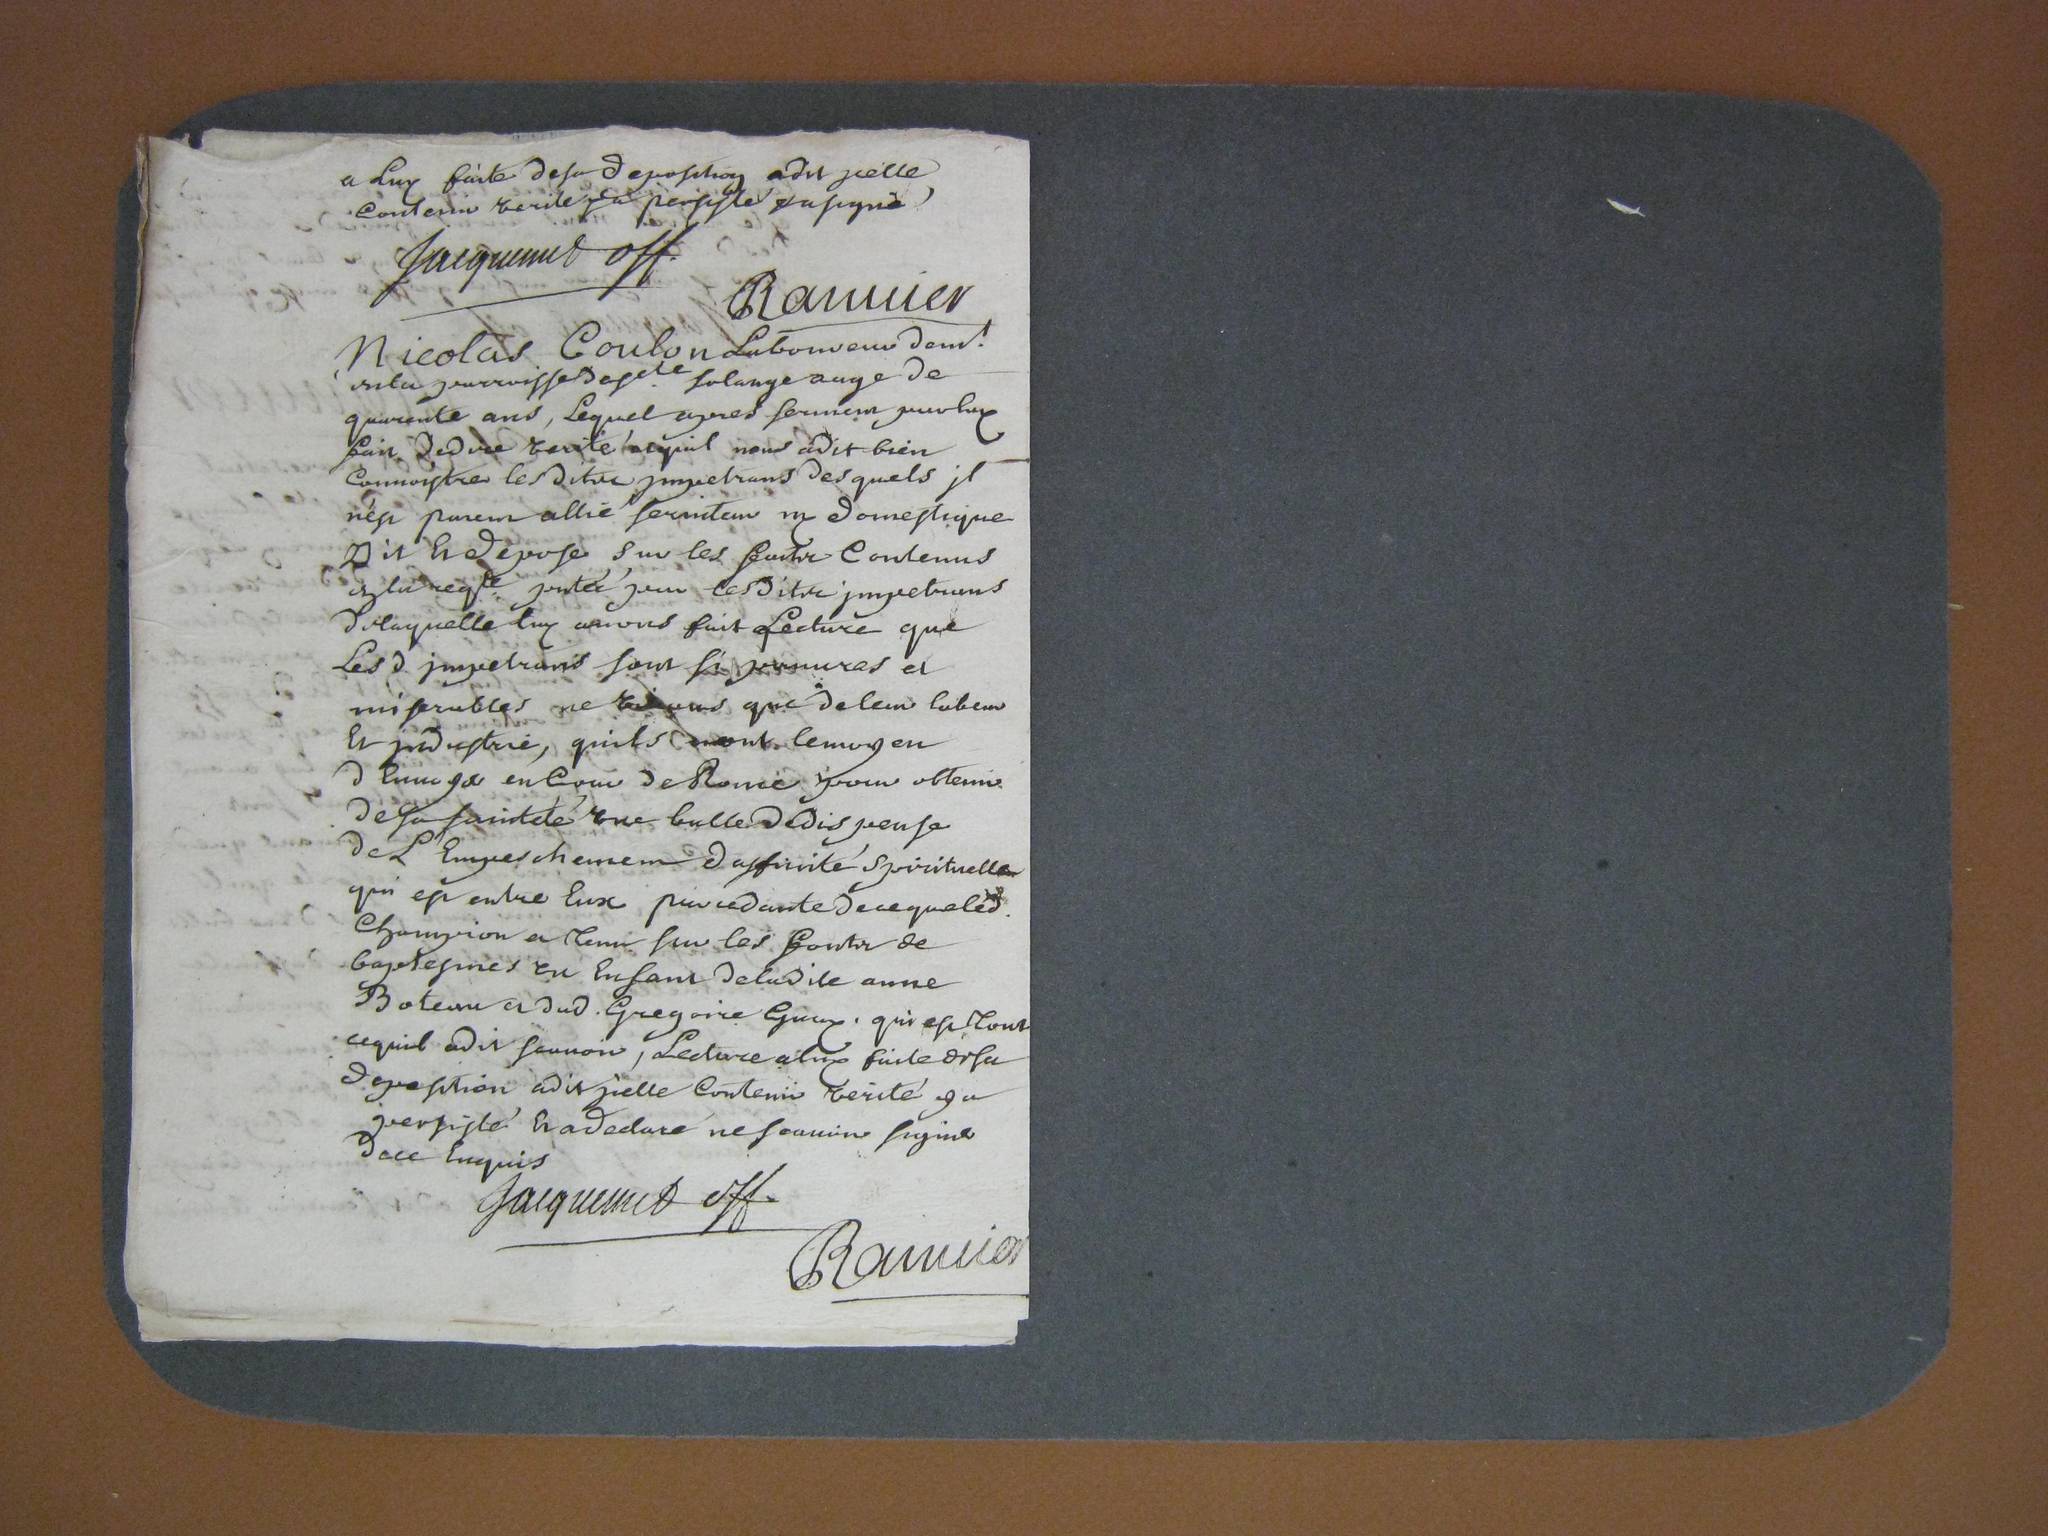 a Luy faite de sa deposition a dit jcelle
Contenir verité y a persisté & a signé
Jacquemet off.
Rannier
Nicolas Coulon Laboureur dem.t
en la parroisse de s.te solange aagé de
quarente ans, Lequel apres serment par luy
fait de dire verité a qui nous a dit bien
Connoistre lesdits jmpetrans desquels jl
n'est parent allié seruiteur ny domestique
Dit Et depose sur les faits Contenus
en la req.te pntée par lesdits jmpetrans
de laquelle luy auons fait Lecture que
Les d jmpetrans sont si pauures et
miserables ne viuans que de leur labeur
Et jndustrie, quils nont le moyen
d'Enuoyer en Cour de Rome pour obtenir
de sa sainteté vne bulle de dispense
de L'Empeschement d'affinité spirituelle
qui est entre Eux procedante de ce que led.
Champion a tenu sur les fonts de
baptesmes vn Enfant de ladite anne
Boteau et dud. Gregoire Guay. qui est tout
ce quil a dit scauoir, Lecture a luy faite de sa
deposition a dit jcelle Contenir verité y a
persisté Et a declaré ne scauoir signer
de ce Enquis
Jacquemet off.
Rannier